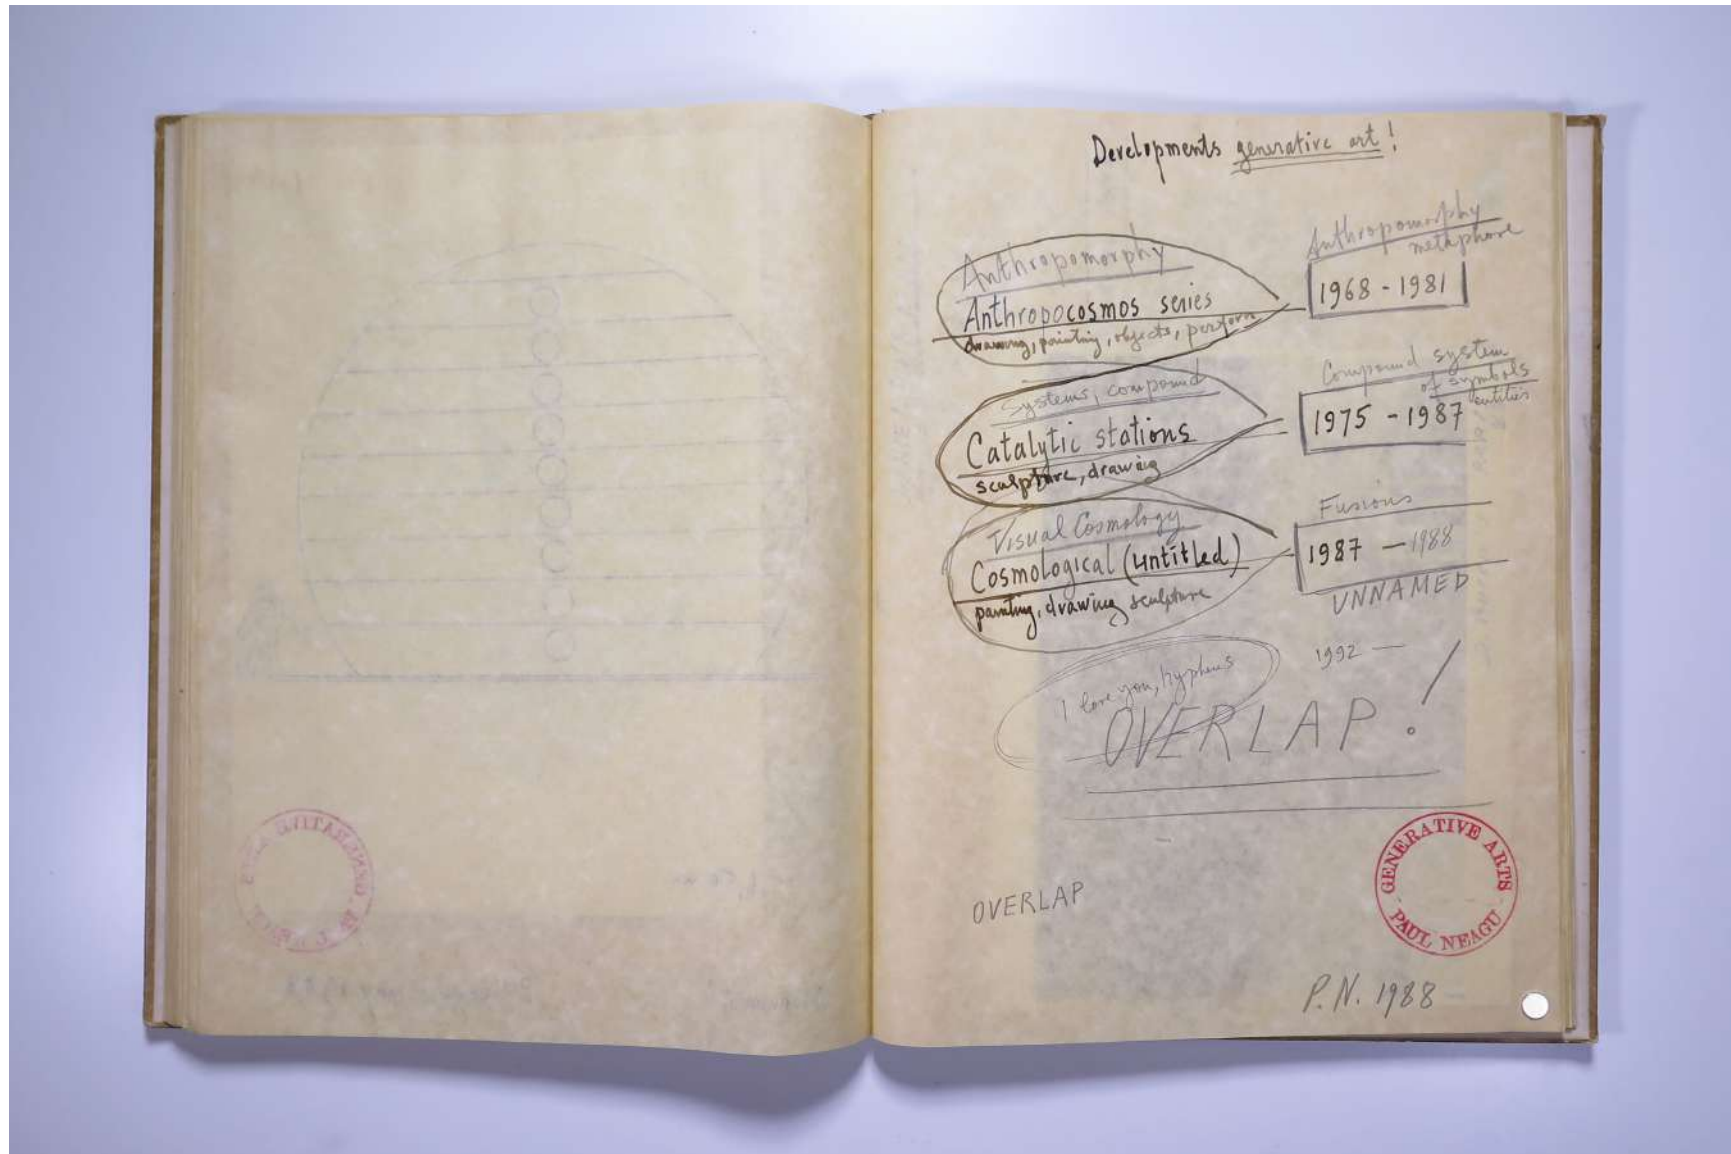 Developments generative art!
Anthropomorphy
Anthropocosmos series
drawing, painting, objects, perform
Anthropomorphy
metaphore
1968 - 1981
Systems, compound
Catalytic stations
sculpture, drawing
Compound system
of symbols
entities
1975 - 1987
Visual Cosmology
Cosmological (untitled)
painting, drawing, sculpture
Fusions
1987 - 1988
UNNAMED
1992 —
I love you, hyphens
OVERLAP!
OVERLAP
GENERATIVE ARTS
- PAUL NEAGU -
P.N. 1988